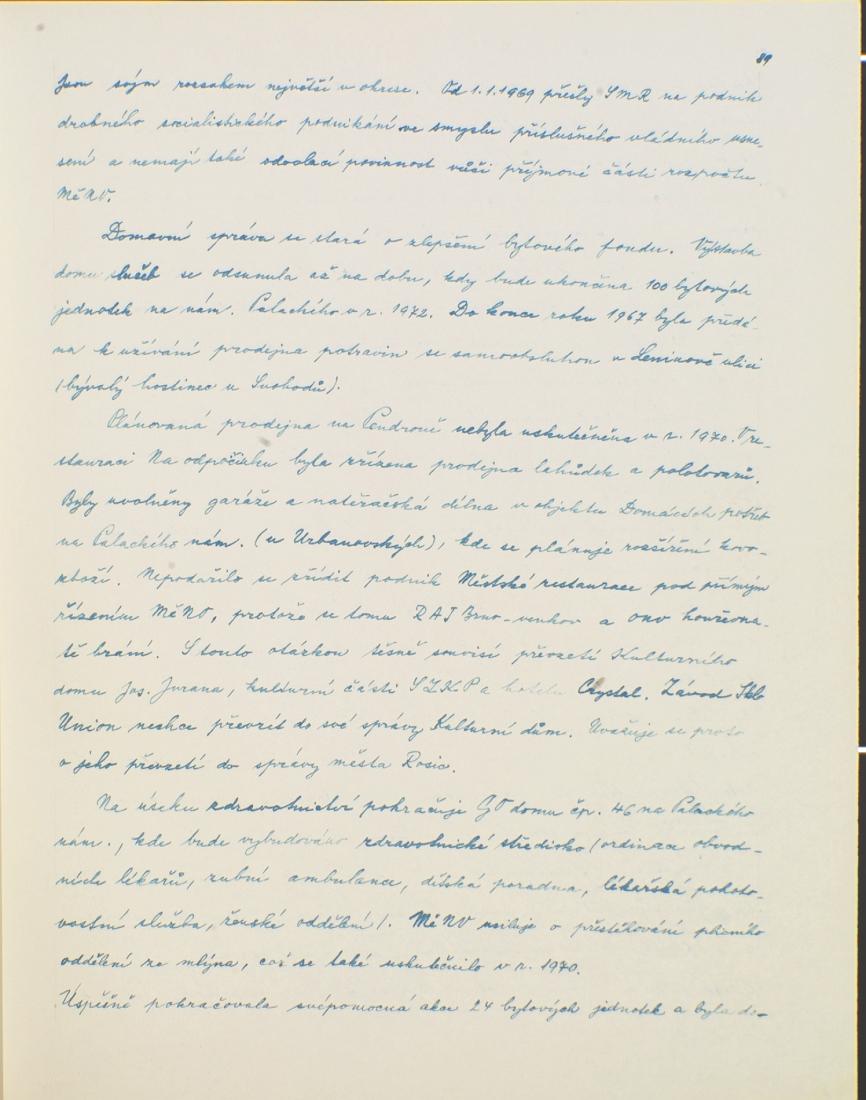 89
jsou svým rozsahem největší v okrese. Od 1.1.1969 přešly SMR na podnik
drobného socialistického podnikání ve smyslu příslušného vládního usne-
sení a nemají také odvolací povinnost vůči příjmové části rozpočtu
MěNV.
Domovní správa se stará o zlepšení bytového fondu. Výstavba
domu služeb se odsunula až na dobu, kdy bude ukončena 100 bytových
jednotek na nám. Palackého v r. 1972. Do konce roku 1967 byla předá-
na k užívání prodejna potravin se samoobsluhou v Leninově ulici
(bývalý hostinec u Svobodů).
Plánovaná prodejna na Pendrově nebyla uskutečněna v r. 1970. V re-
stauraci Na odpočinku byla zřízena prodejna lahůdek a polotovarů.
Byly uvolněny garáže a natěračská dílna v objektu Domácích potřeb
na Palackého nám. (u Urbanovských), kde se plánuje rozšíření kovo-
zboží. Nepodařilo se zřídit podnik Městské restaurace pod přímým
řízením MěNV, protože se tomu RAJ Brno-venkov a ONV houževna-
tě brání. S touto otázkou těsně souvisí převzetí Kulturního
domu Jos. Jurana, kulturní části SZKP a hotelu Crystal. Závod Sklo
Union nechce převzít do své správy Kulturní dům. Uvažuje se proto
o jeho převzetí do správy města Rosic.
Na úseku zdravotnictví pokračuje GO domu čp. 46 na Palackého
nám., kde bude vybudováno zdravotnické středisko (ordinace obvod-
ních lékařů, zubní ambulance, dětská poradna, lékařská pohoto-
vostní služba, ženské oddělení). MěNV usiluje o přestěhování plicního
oddělení ze mlýna, což se také uskutečnilo v r. 1970.
Úspěšně pokračovala svépomocná akce 24 bytových jednotek a byla do-